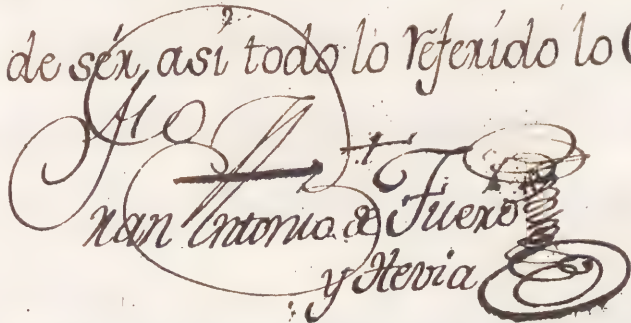 de sér así todo lo referido lo
Fran Antonio de Fuero
y Hevia